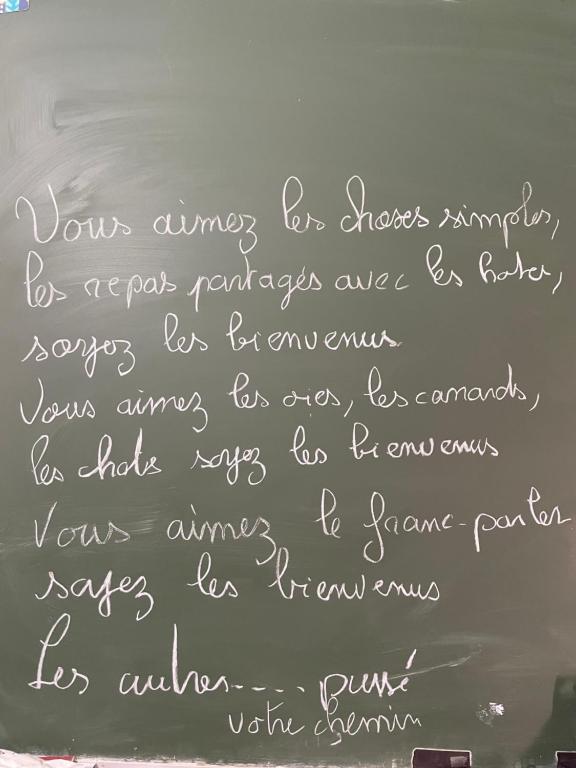 Vous aimez les choses simples,
les repas partagés avec les hotes,
soyez les bienvenus
Vous aimez les oies, les canards,
les chats soyez les bienvenus
Vous aimez le franc-parler
soyez les bienvenus
Les autres.... passé
votre chemin